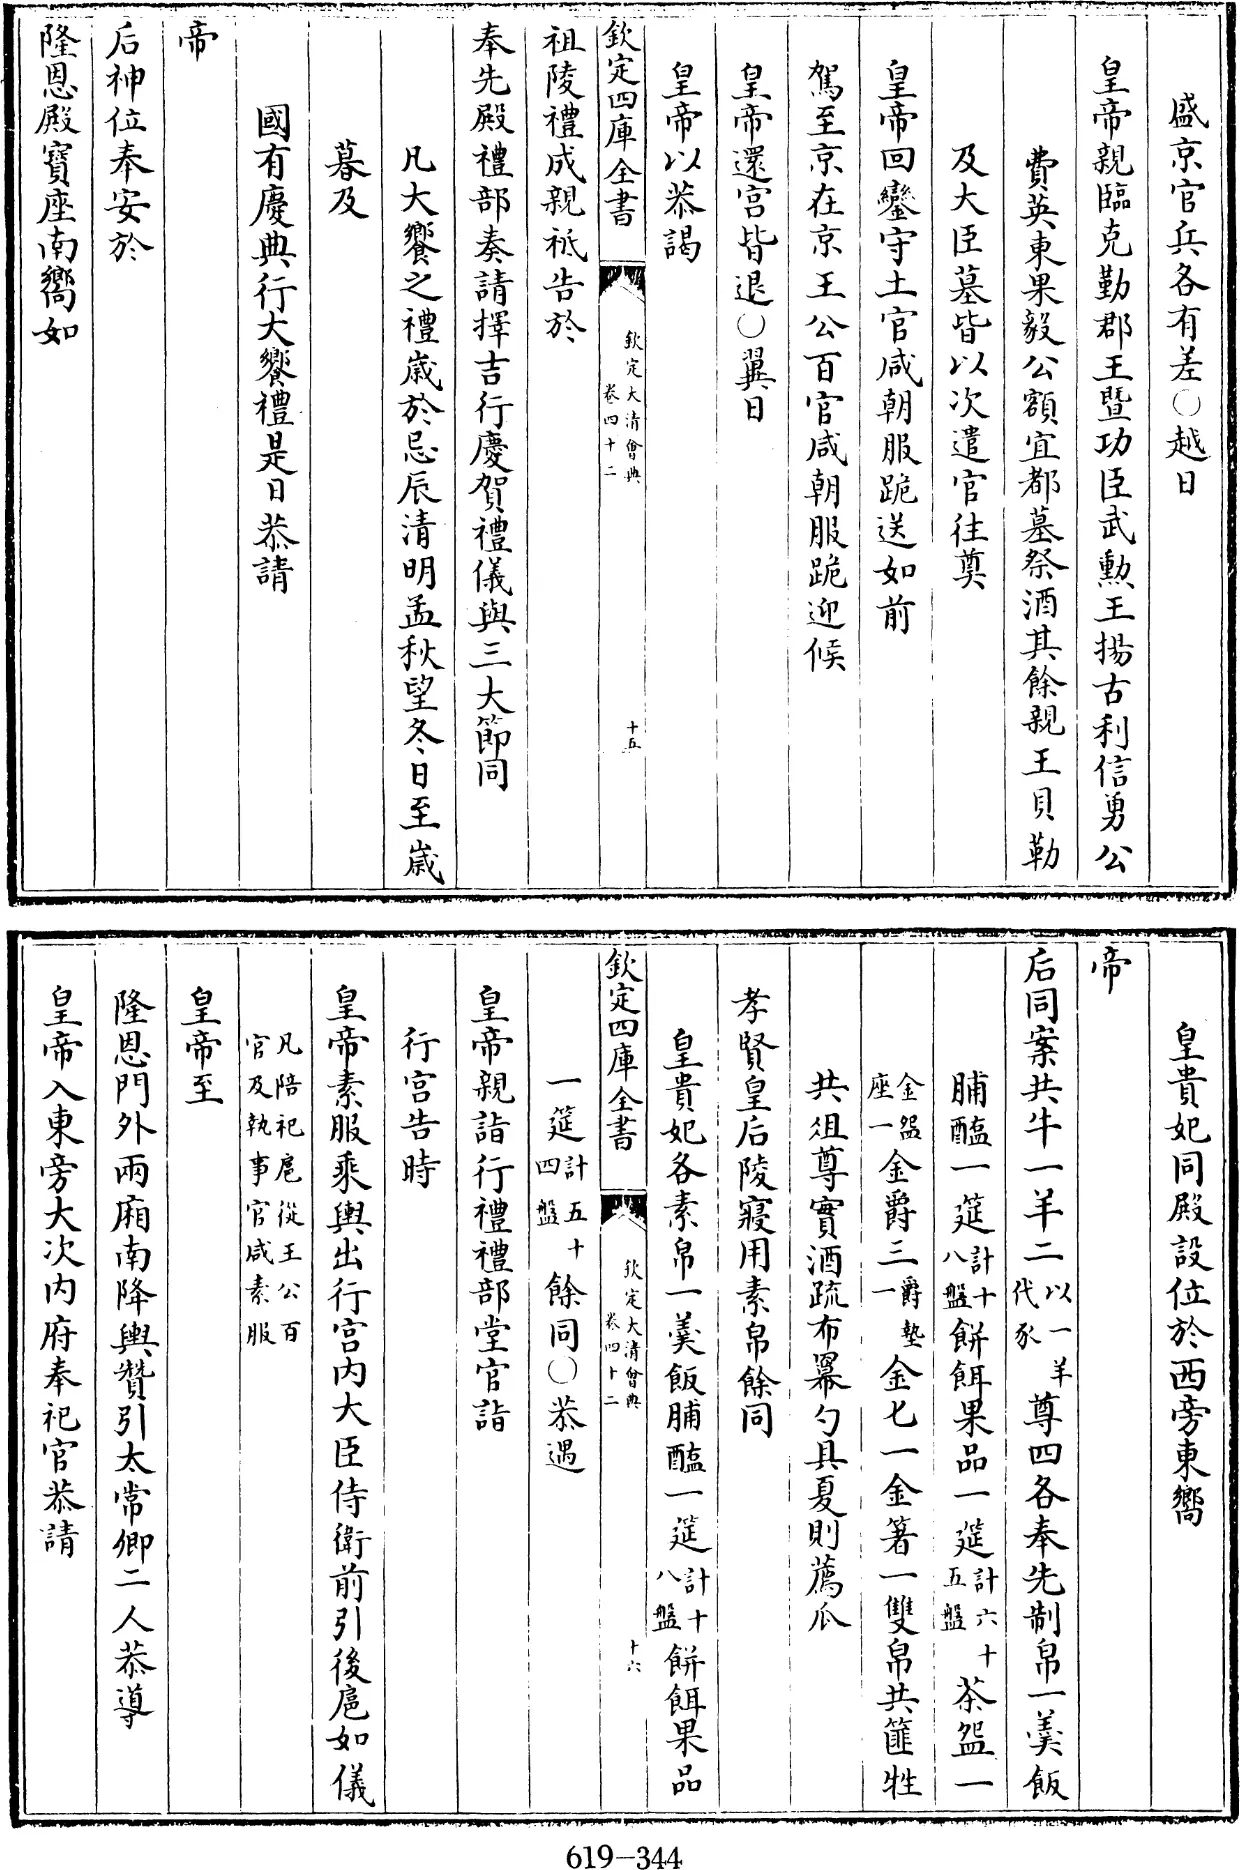 盛京官兵各有差○越日
皇帝親臨克勤郡王暨功臣武勲王揚古利信勇公
費英東果毅公額宜都墓祭酒其餘親王貝勒
及大臣墓皆以次遣官往奠
皇帝回鑾守土官咸朝服跪送如前
駕至京在京王公百官咸朝服跪迎候
皇帝還宫皆退○翼日
皇帝以恭謁
欽定四庫全書
欽定大清會典
卷四十二
十五
祖陵禮成親祗告於
奉先殿禮部奏請擇吉行慶賀禮儀與三大節同
凡大饗之禮歳於忌辰清明孟秋望冬日至歳
暮及
國有慶典行大饗禮是日恭請
帝
后神位奉安於
隆恩殿寶座南嚮如
皇貴妃同殿設位於西旁東嚮
帝
后同案共牛一羊二以一羊代豕尊四各奉先制帛一羮飯
脯醢一筵計十八盤餅餌果品一筵計六十五盤茶盌一
金盌座一金爵三爵墊一金七一金箸一雙帛共篚牲
共俎尊實酒疏布羃勺具夏則薦瓜
孝賢皇后陵寢用素帛餘同
皇貴妃各素帛一羮飯脯醢一筵計十八盤餅餌果品
欽定四庫全書
欽定大清會典
卷四十二
十六
一筵計五十四盤餘同○恭遇
皇帝親詣行禮禮部堂官詣
行宫告時
皇帝素服乘輿出行宫内大臣侍衛前引後扈如儀
凡陪祀扈從王公百官及執事官咸素服
皇帝至
隆恩門外兩廂南降輿贊引太常卿二人恭導
皇帝入東旁大次内府奉祀官恭請
619-344